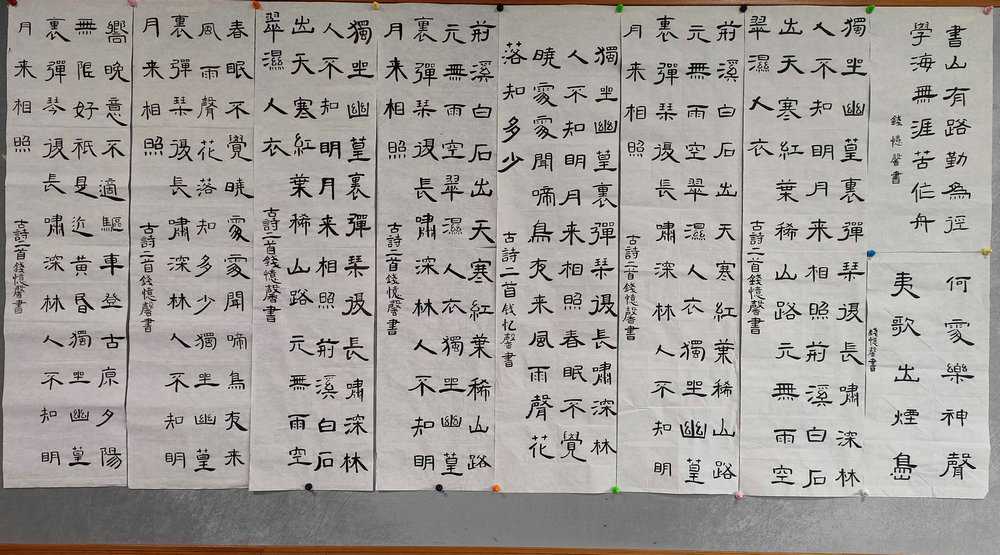 書山有路勤為徑
學海無涯苦作舟
錢憶馨書
何處樂神聲
夷歌出煙島
錢憶馨書
獨坐幽篁裏彈琴復長嘯深林
人不知明月来相照荊溪白石
出天寒紅葉稀山路元無雨空
翠濕人衣
古詩二首錢憶馨書
荊溪白石出天寒紅葉稀山路
元無雨空翠濕人衣獨坐幽篁
裏彈琴復長嘯深林人不知明
月来相照
古詩二首錢憶馨書
獨坐幽篁裏彈琴復長嘯深林
人不知明月来相照春眠不覺
曉處處聞啼鳥夜来風雨聲花
落知多少
古詩二首钱忆馨書
荊溪白石出天寒紅葉稀山路
元無雨空翠濕人衣獨坐幽篁
裏彈琴復長嘯深林人不知明
月来相照
古詩二首錢憶馨書
獨坐幽篁裏彈琴復長嘯深林
人不知明月来相照荊溪白石
出天寒紅葉稀山路元無雨空
翠濕人衣
古詩二首錢憶馨書
春眠不覺曉處處聞啼鳥夜来
風雨聲花落知多少獨坐幽篁
裏彈琴復長嘯深林人不知明
月来相照
古詩二首錢憶馨書
嚮晚意不適驅車登古原夕陽
無限好祇是近黄昏獨坐幽篁
裏彈琴復長嘯深林人不知明
月来相照
古詩二首錢憶馨書